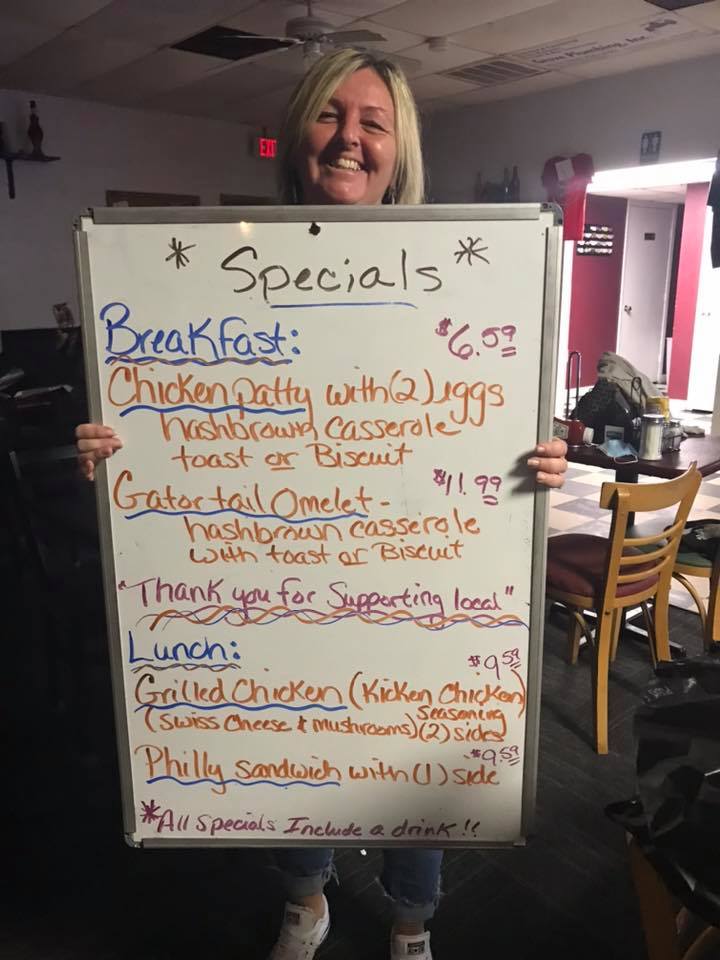 * Specials *
Breakfast: $6.59
Chicken patty with (2) eggs
hashbrown Casserole
toast or Biscuit
Gator tail Omelet - $11.99
hashbrown casserole
with toast or Biscuit
"Thank you for Supporting local"
Lunch: $9.59
Grilled Chicken (Kicken Chicken)
Seasoning
(Swiss Cheese & mushrooms) (2) sides
$9.59
Philly sandwich with (1) side
*All Specials Include a drink!!
EXIT